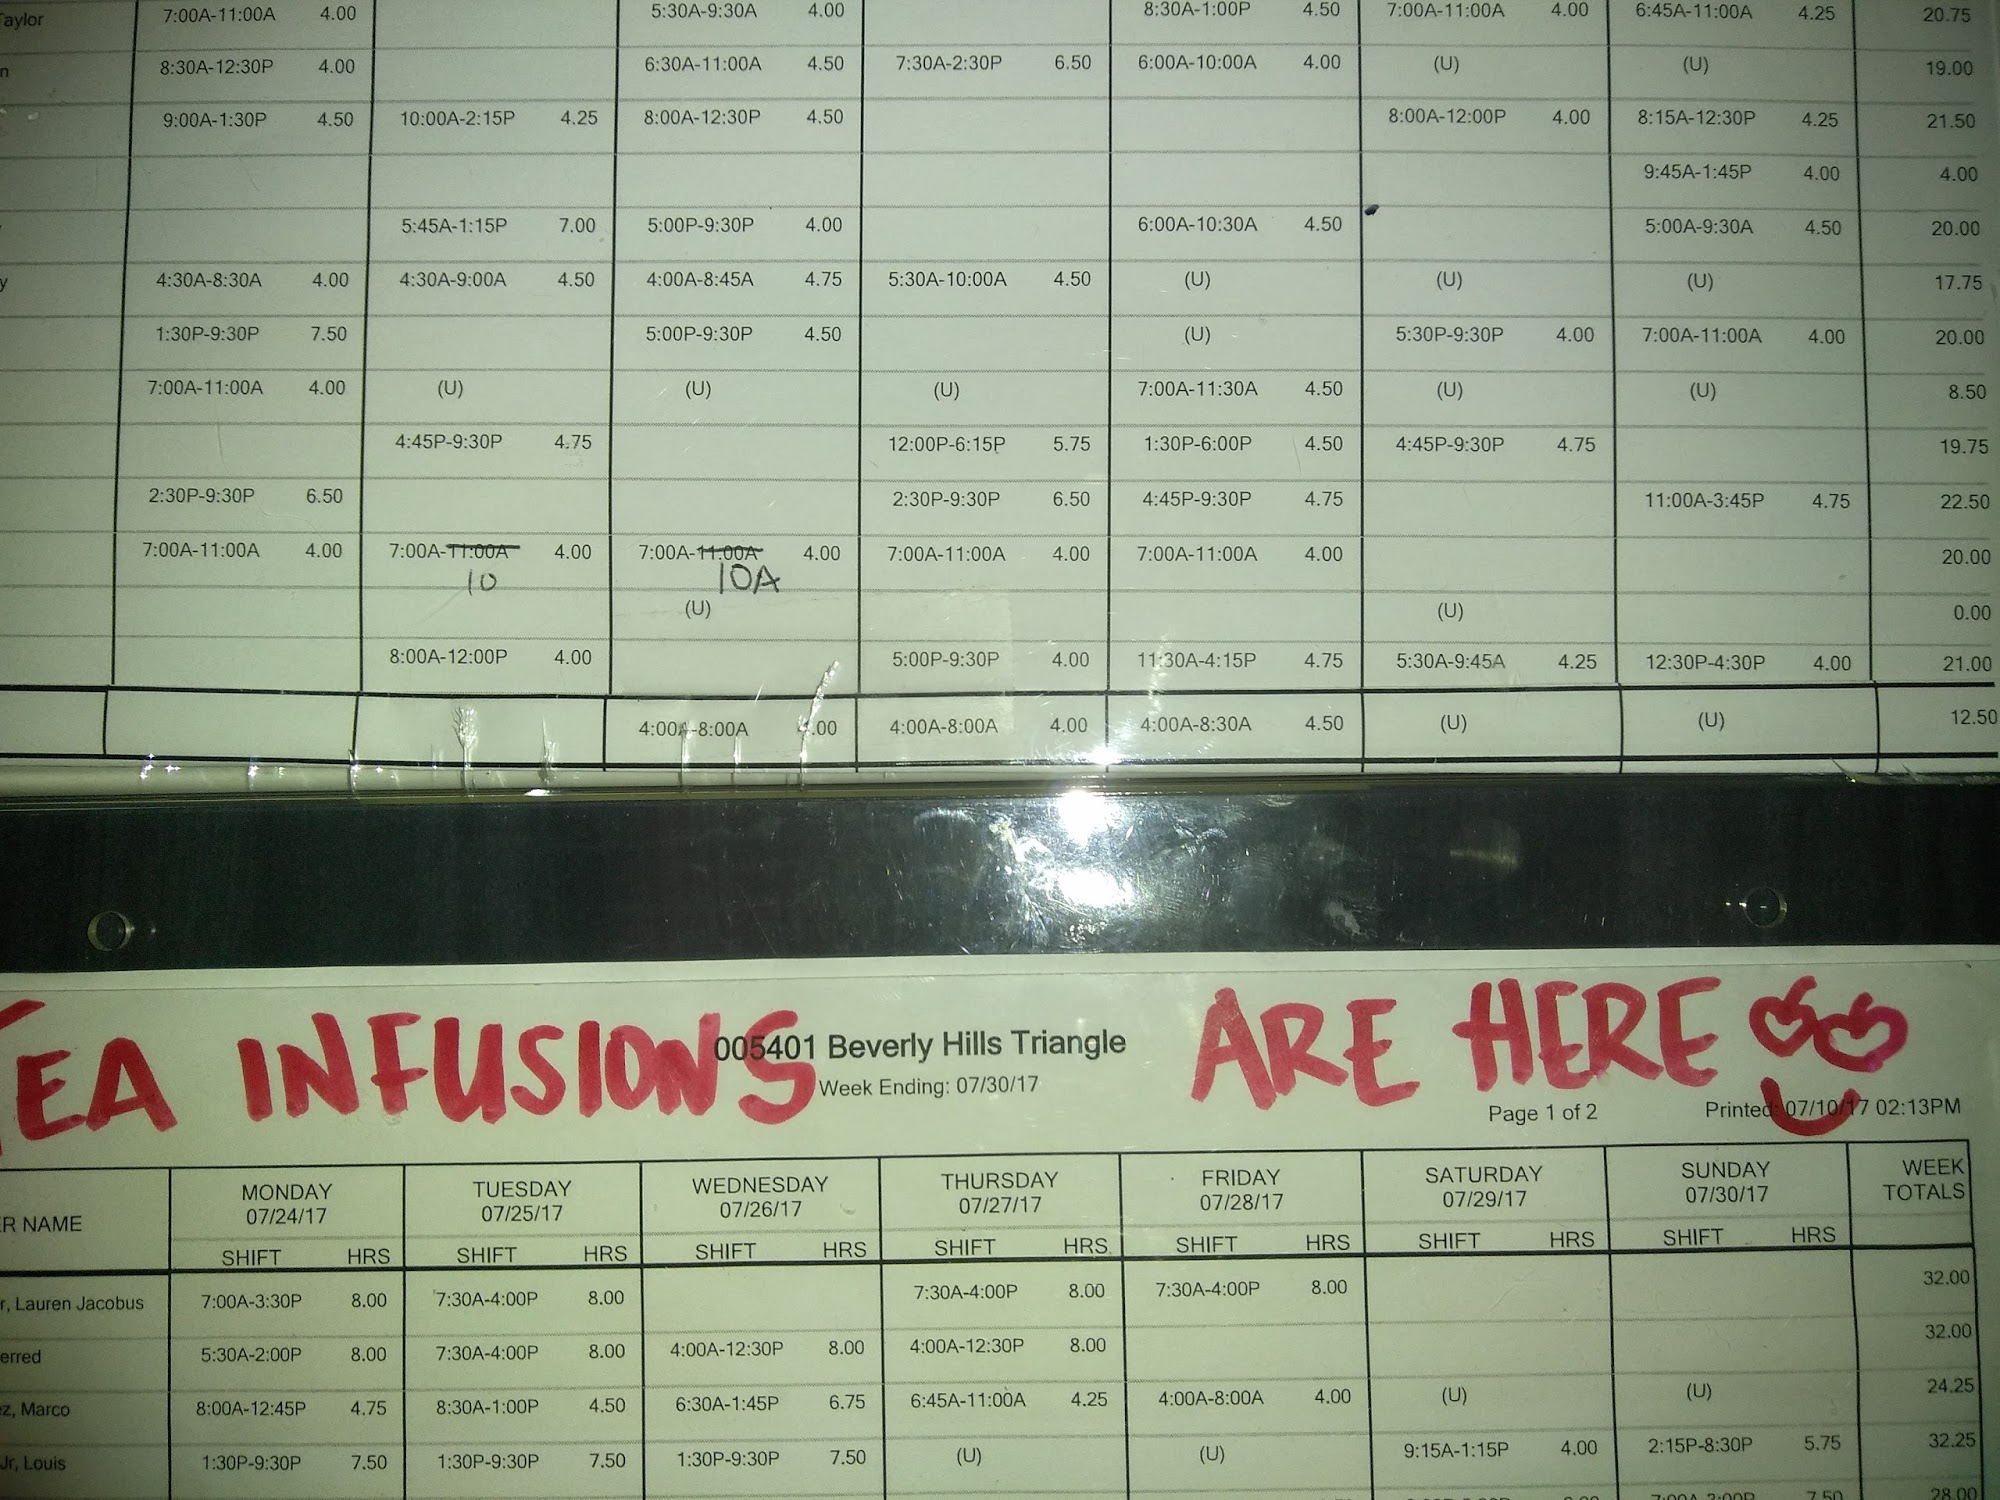 Taylor 7:00A-11:00A 4.00 5:30A-9:30A 4.00 8:30A-1:00P 4.50 7:00A-11:00A 4.00 6:45A-11:00A 4.25 20.75
n 8:30A-12:30P 4.00 6:30A-11:00A 4.50 7:30A-2:30P 6.50 6:00A-10:00A 4.00 (U) (U) 19.00
9:00A-1:30P 4.50 10:00A-2:15P 4.25 8:00A-12:30P 4.50 8:00A-12:00P 4.00 8:15A-12:30P 4.25 21.50
9:45A-1:45P 4.00 4.00
5:45A-1:15P 7.00 5:00P-9:30P 4.00 6:00A-10:30A 4.50 5:00A-9:30A 4.50 20.00
y 4:30A-8:30A 4.00 4:30A-9:00A 4.50 4:00A-8:45A 4.75 5:30A-10:00A 4.50 (U) (U) (U) 17.75
1:30P-9:30P 7.50 5:00P-9:30P 4.50 (U) 5:30P-9:30P 4.00 7:00A-11:00A 4.00 20.00
7:00A-11:00A 4.00 (U) (U) (U) 7:00A-11:30A 4.50 (U) (U) 8.50
4:45P-9:30P 4.75 12:00P-6:15P 5.75 1:30P-6:00P 4.50 4:45P-9:30P 4.75 19.75
2:30P-9:30P 6.50 2:30P-9:30P 6.50 4:45P-9:30P 4.75 11:00A-3:45P 4.75 22.50
7:00A-11:00A 4.00 7:00A-11:00A 4.00 7:00A-11:00A 4.00 7:00A-11:00A 4.00 7:00A-11:00A 4.00 20.00
10 10A
(U) (U) 0.00
8:00A-12:00P 4.00 5:00P-9:30P 4.00 11:30A-4:15P 4.75 5:30A-9:45A 4.25 12:30P-4:30P 4.00 21.00
4:00A-8:00A 4.00 4:00A-8:00A 4.00 4:00A-8:30A 4.50 (U) (U) 12.50
TEA INFUSIONS ARE HERE
005401 Beverly Hills Triangle
Week Ending: 07/30/17
Page 1 of 2 Printed: 07/10/17 02:13PM
MONDAY TUESDAY WEDNESDAY THURSDAY FRIDAY SATURDAY SUNDAY WEEK
R NAME 07/24/17 07/25/17 07/26/17 07/27/17 07/28/17 07/29/17 07/30/17 TOTALS
SHIFT HRS SHIFT HRS SHIFT HRS SHIFT HRS SHIFT HRS SHIFT HRS SHIFT HRS
r, Lauren Jacobus 7:00A-3:30P 8.00 7:30A-4:00P 8.00 7:30A-4:00P 8.00 7:30A-4:00P 8.00 32.00
erred 5:30A-2:00P 8.00 7:30A-4:00P 8.00 4:00A-12:30P 8.00 4:00A-12:30P 8.00 32.00
ez, Marco 8:00A-12:45P 4.75 8:30A-1:00P 4.50 6:30A-1:45P 6.75 6:45A-11:00A 4.25 4:00A-8:00A 4.00 (U) (U) 24.25
Jr, Louis 1:30P-9:30P 7.50 1:30P-9:30P 7.50 1:30P-9:30P 7.50 (U) (U) 9:15A-1:15P 4.00 2:15P-8:30P 5.75 32.25
7:00A-3:00P 7.50 28.00